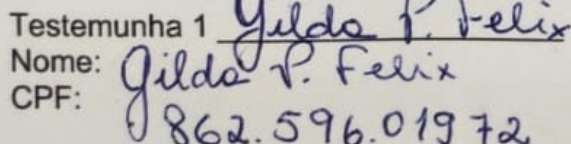 Testemunha 1 Gilda P. Felix
Nome: Gilda P. Felix
CPF: 862.596.01972